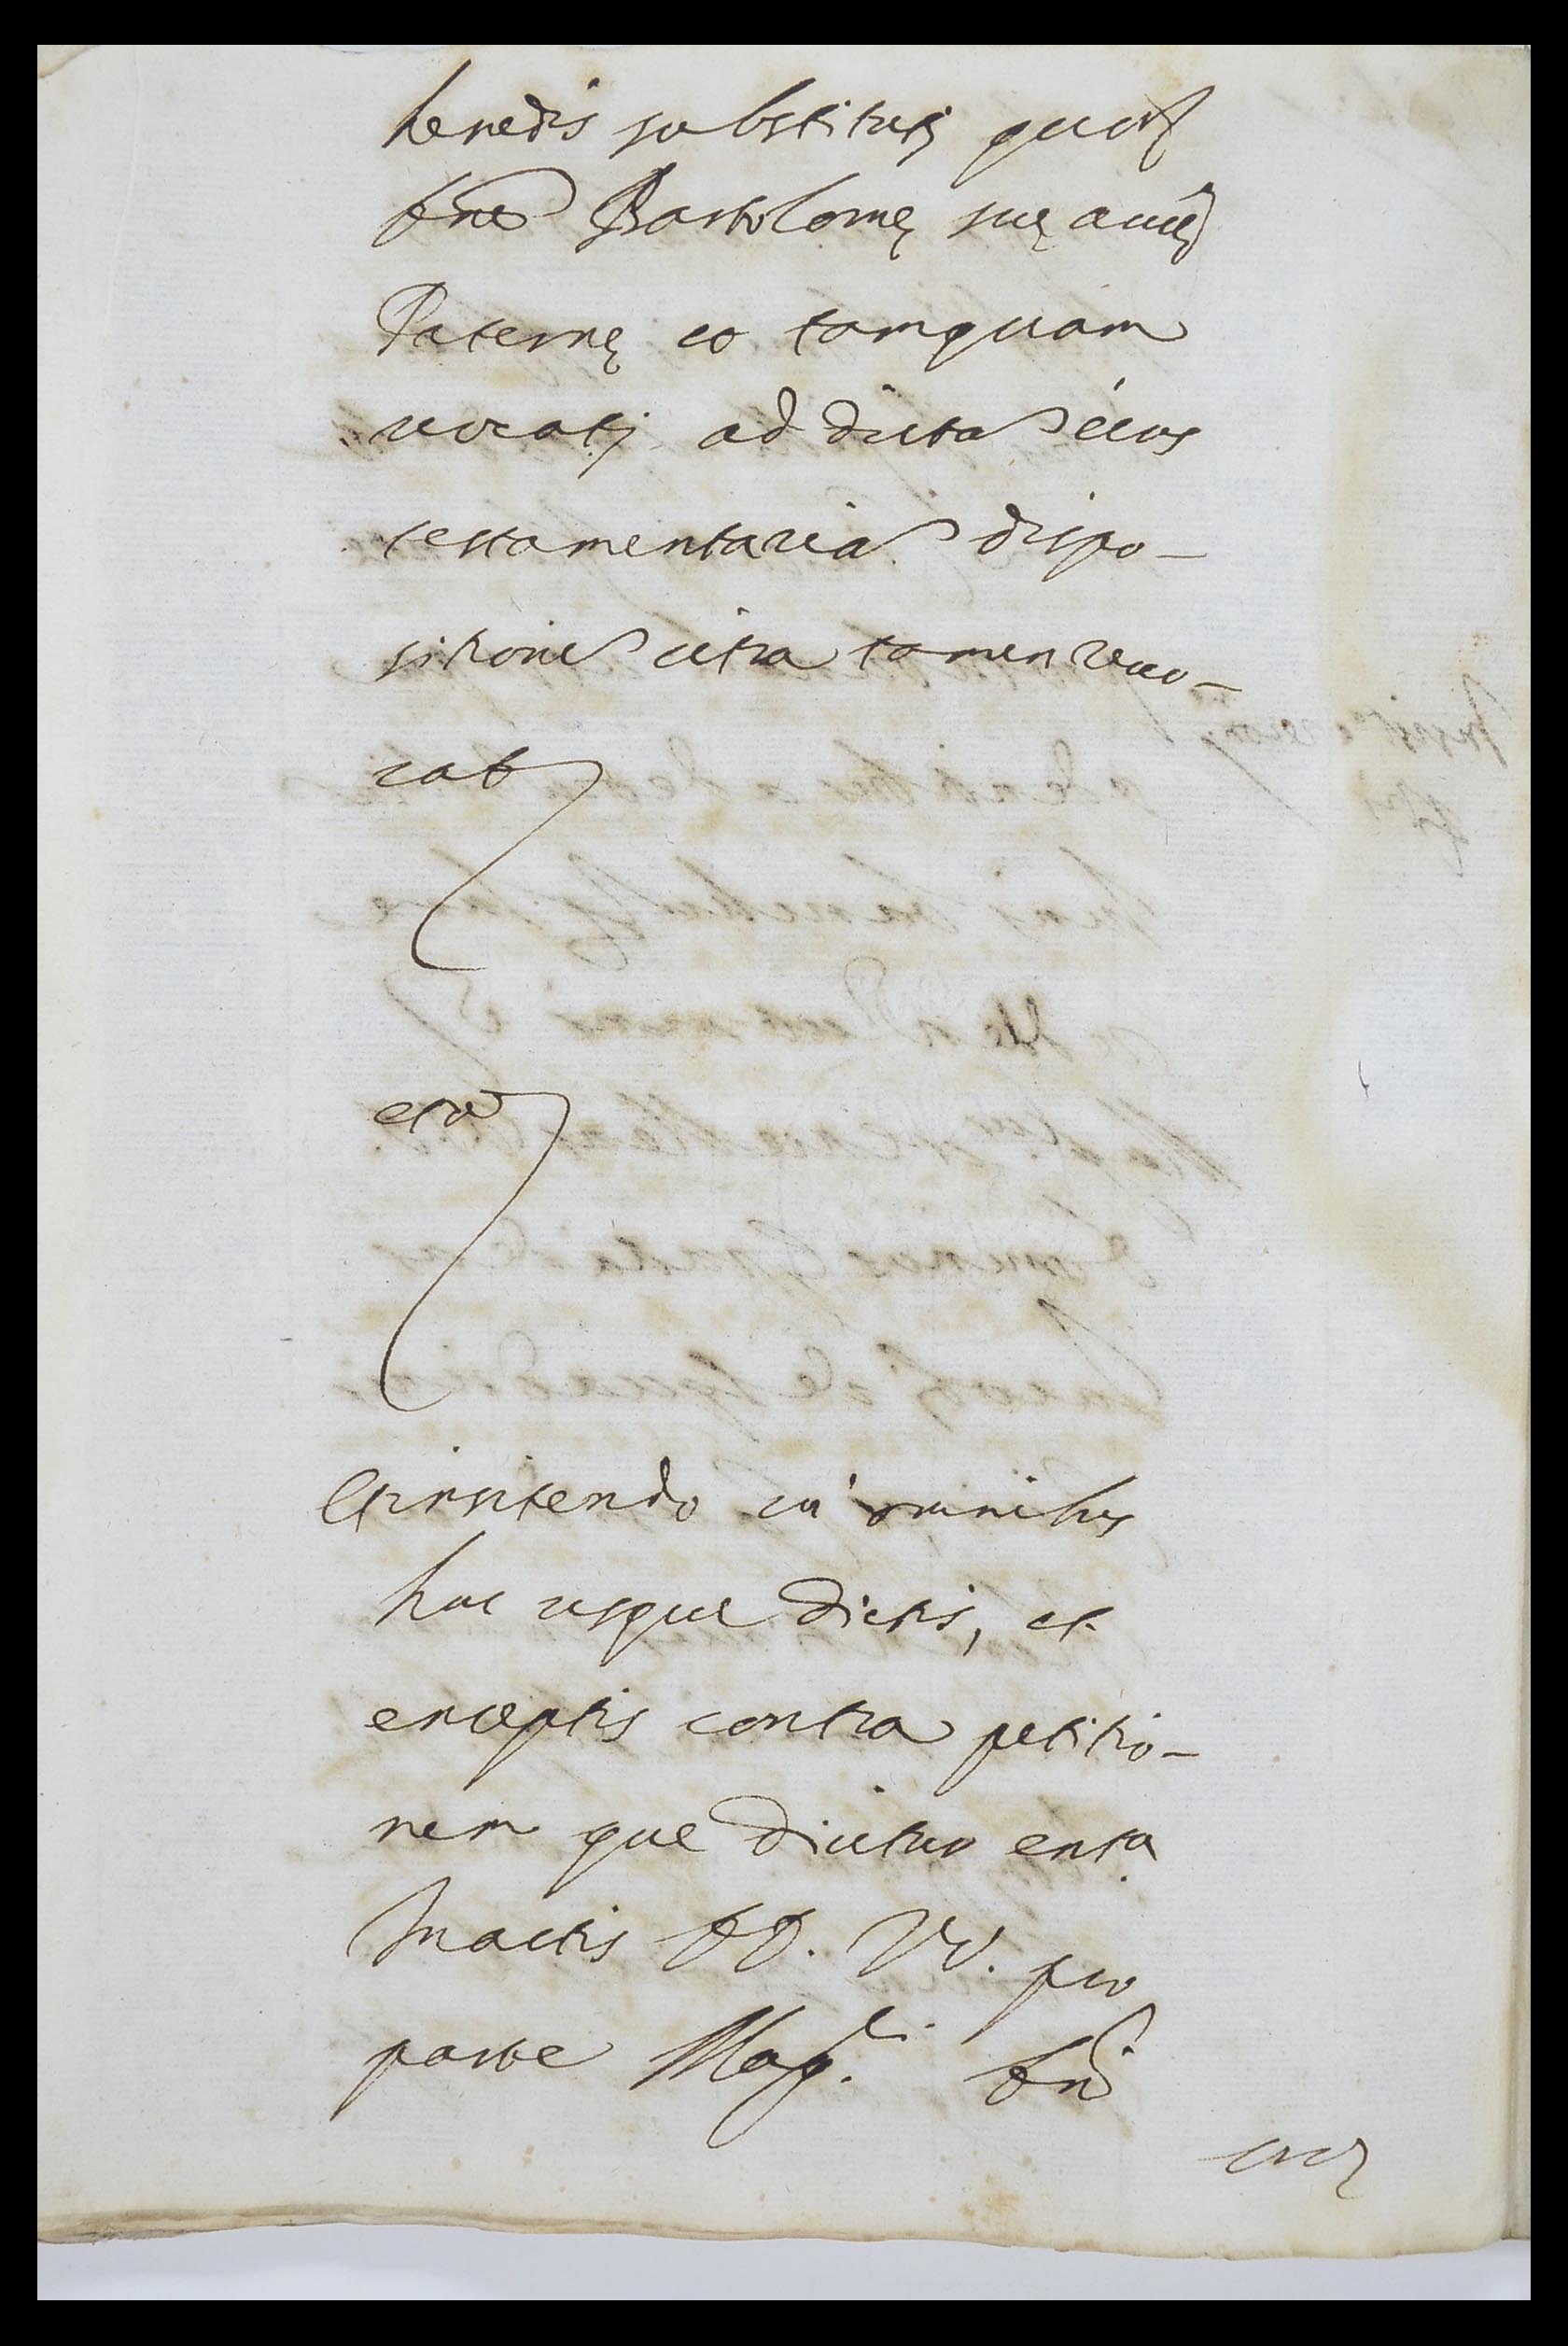 heredis substituti quoq
Bartolomę suę auię
Paternę eo tamquam
uocati ad dicta eius
testamentaria dispo-
sitione citra tamen reuo-
cat
Et insistendo in omnibus
huc usque dictis, et
exceptis contra petitio-
nem que dicitur exta
In actis DD. VV. pro
parte Mag.ci